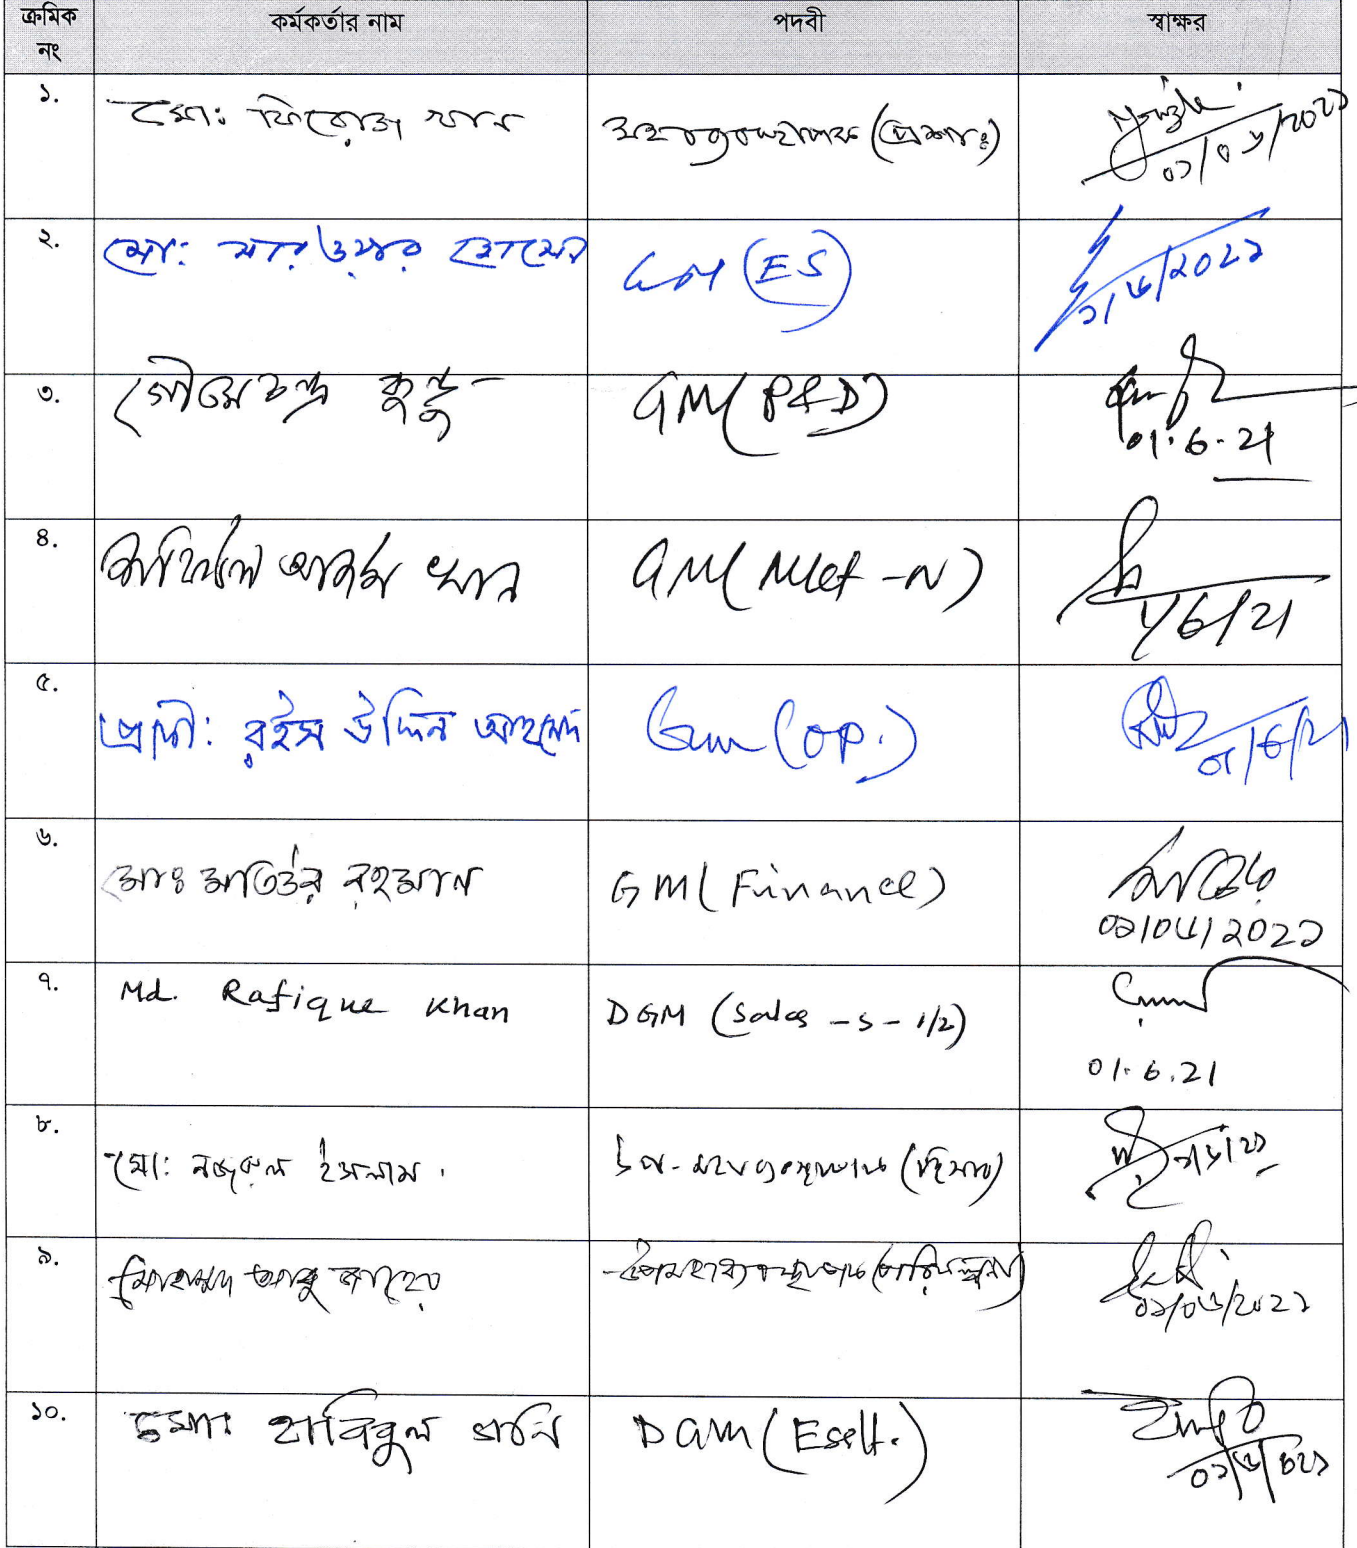 ক্রমিক নং কর্মকর্তার নাম পদবী স্বাক্ষর
১. মো: ফিরোজ খান মহাব্যবস্থাপক (প্রশাঃ) ০১/০৬/২০২১
২. মো: সারওয়ার হোসেন GM (ES) ১/৬/২০২১
৩. গৌতম চন্দ্র কুন্ডু GM (P&D) 01.6.21
৪. খান GM (Mket-N) 1/6/21
৫. প্রকৌ: রইস উদ্দিন আহমেদ GM (OP.) 01/6/21
৬. মোঃ মতিউর রহমান GM (Finance) ০১/০৬/২০২১
৭. Md. Rafique Khan DGM (Sales -S- 1/2) 01.6.21
৮. মো: নজরুল ইসলাম. উপ-মহাব্যবস্থাপক (হিসাব)
৯. মোহাম্মদ আবু তাহের উপমহাব্যবস্থাপক (পরিকল্পনা) ০১/০৬/২০২১
১০. মোঃ হাবিবুল গনি DGM (Estt.)